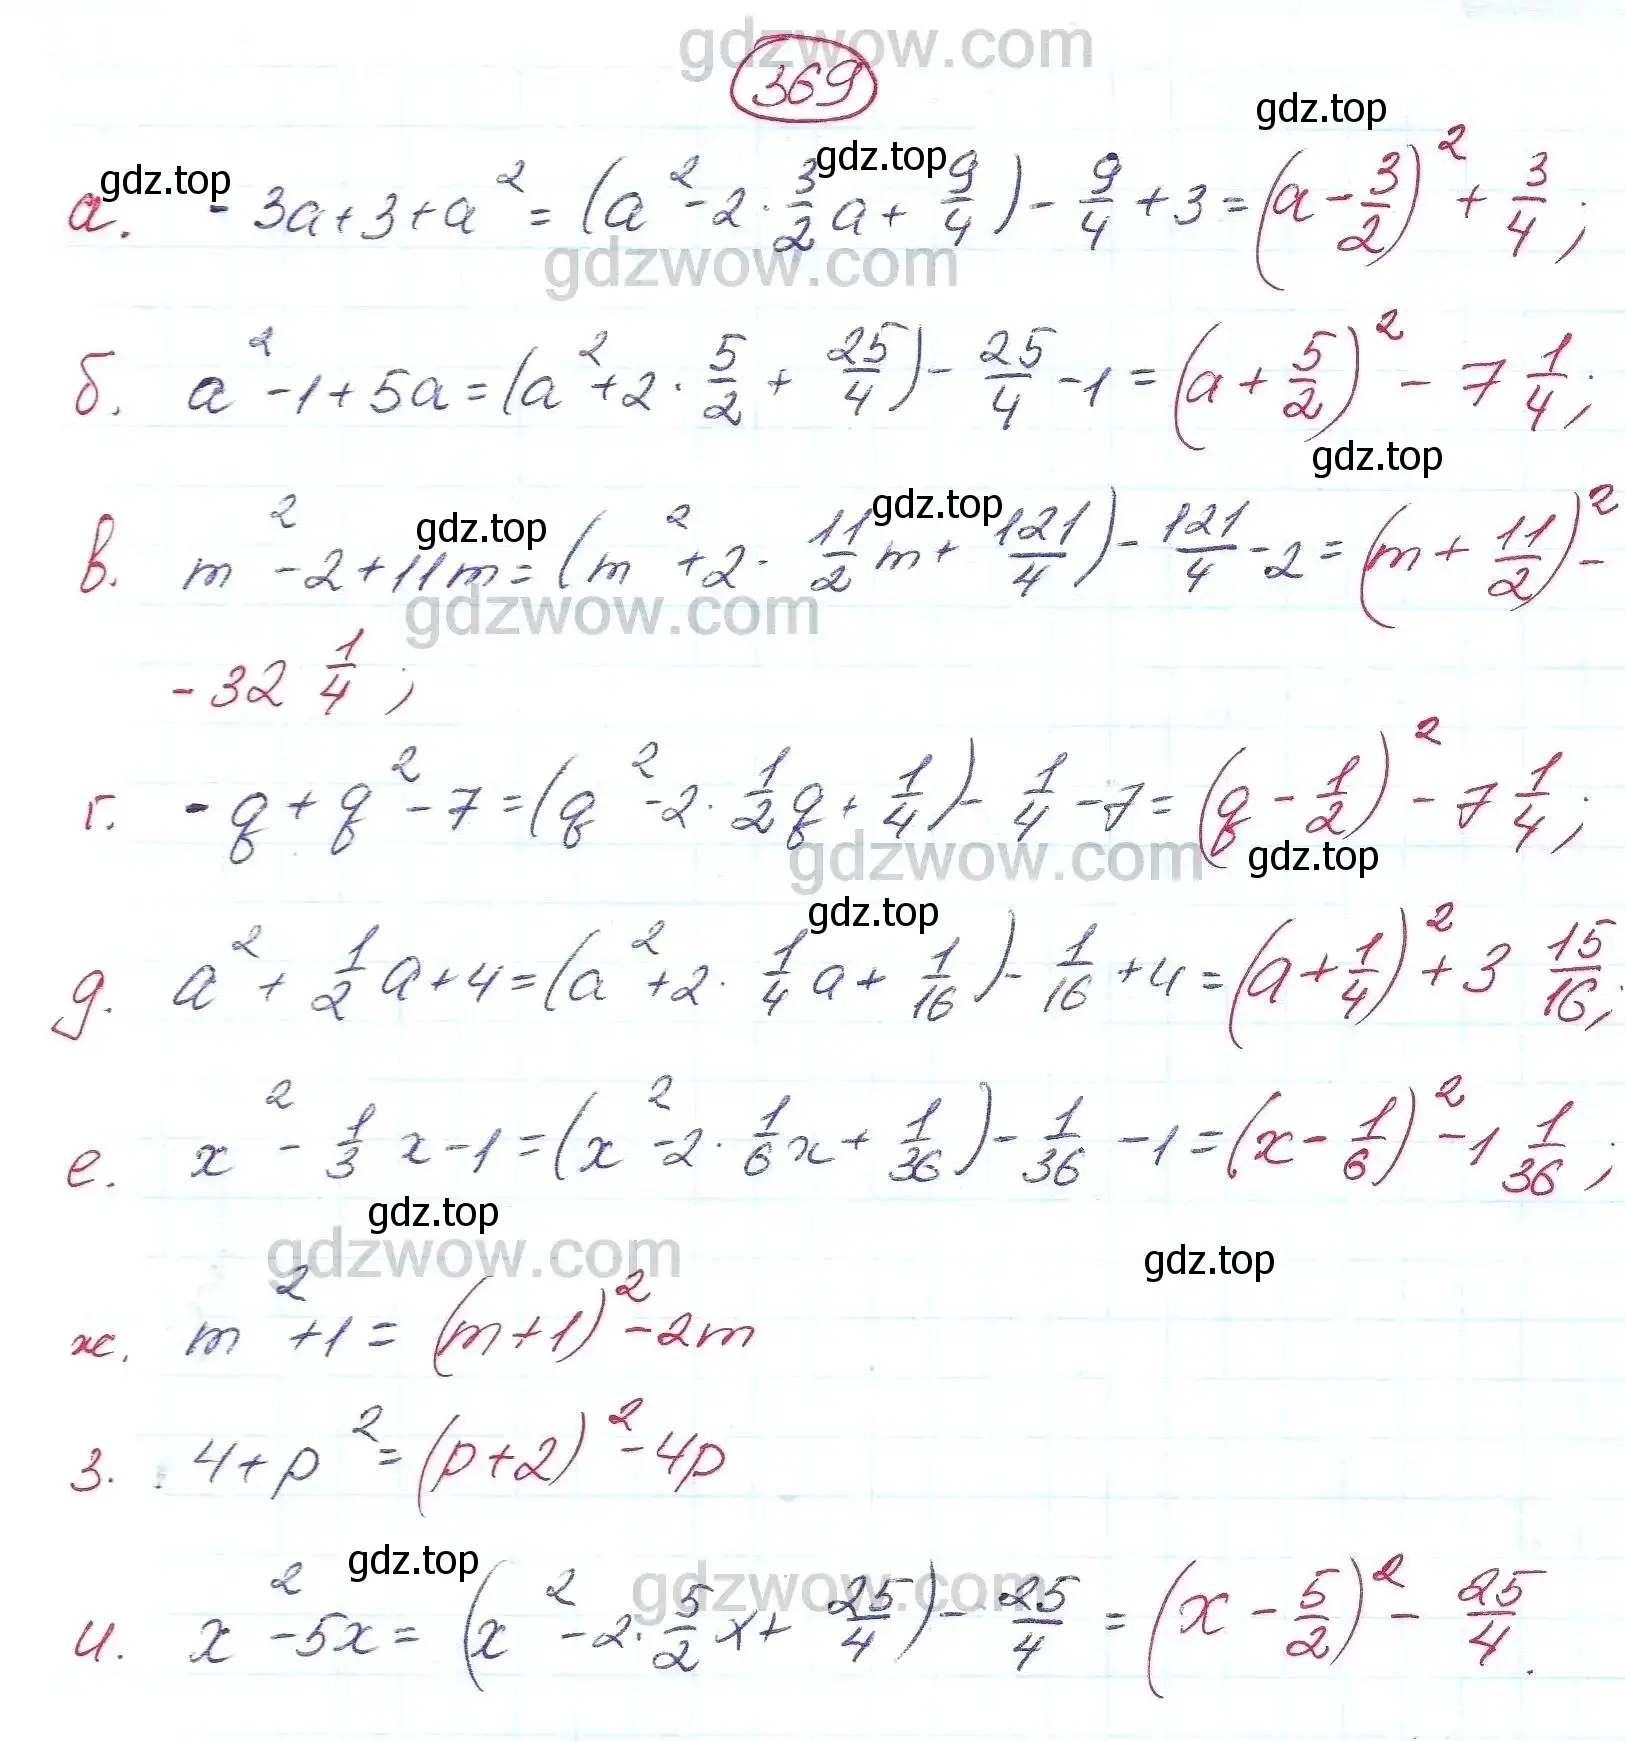 gdzwow.com
369
gdz.top
gdz.top gdz.top
а. - 3a+3+a² = (a² - 2 · 3/2 a + 9/4) - 9/4 + 3 = (a - 3/2)² + 3/4 ;
gdzwow.com
б. a² - 1 + 5a = (a² + 2 · 5/2 + 25/4) - 25/4 - 1 = (a + 5/2)² - 7 1/4 ;
gdz.top
gdz.top gdz.top
в. m² - 2 + 11m = (m² + 2 · 11/2 m + 121/4) - 121/4 - 2 = (m + 11/2)² -
gdzwow.com
- 32 1/4 ;
г. - q + q² - 7 = (q² - 2 · 1/2 q + 1/4) - 1/4 - 7 = (q - 1/2)² - 7 1/4 ;
gdzwow.com gdz.top
gdz.top
д. a² + 1/2 a + 4 = (a² + 2 · 1/4 a + 1/16) - 1/16 + 4 = (a + 1/4)² + 3 15/16 ;
е. x² - 1/3 x - 1 = (x² - 2 · 1/6 x + 1/36) - 1/36 - 1 = (x - 1/6)² - 1 1/36 ;
gdz.top
gdzwow.com gdz.top
ж. m² + 1 = (m+1)² - 2m
з. 4 + p² = (p+2)² - 4p
gdz.top gdzwow.com
и. x² - 5x = (x² - 2 · 5/2 x + 25/4) - 25/4 = (x - 5/2)² - 25/4 .